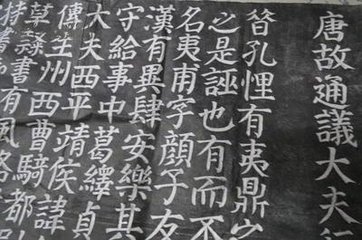 唐故通議大夫行
昔孔悝有夷鼎之
之是誣也有而不
名夷甫字顏子友
漢有異肆安樂其
守給事中葛繹貞
大夫西平靖侯諱
傳生州西曹騎都
草隸書有風格
特書